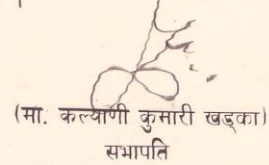 (मा. कल्याणी कुमारी खड्का)
सभापति